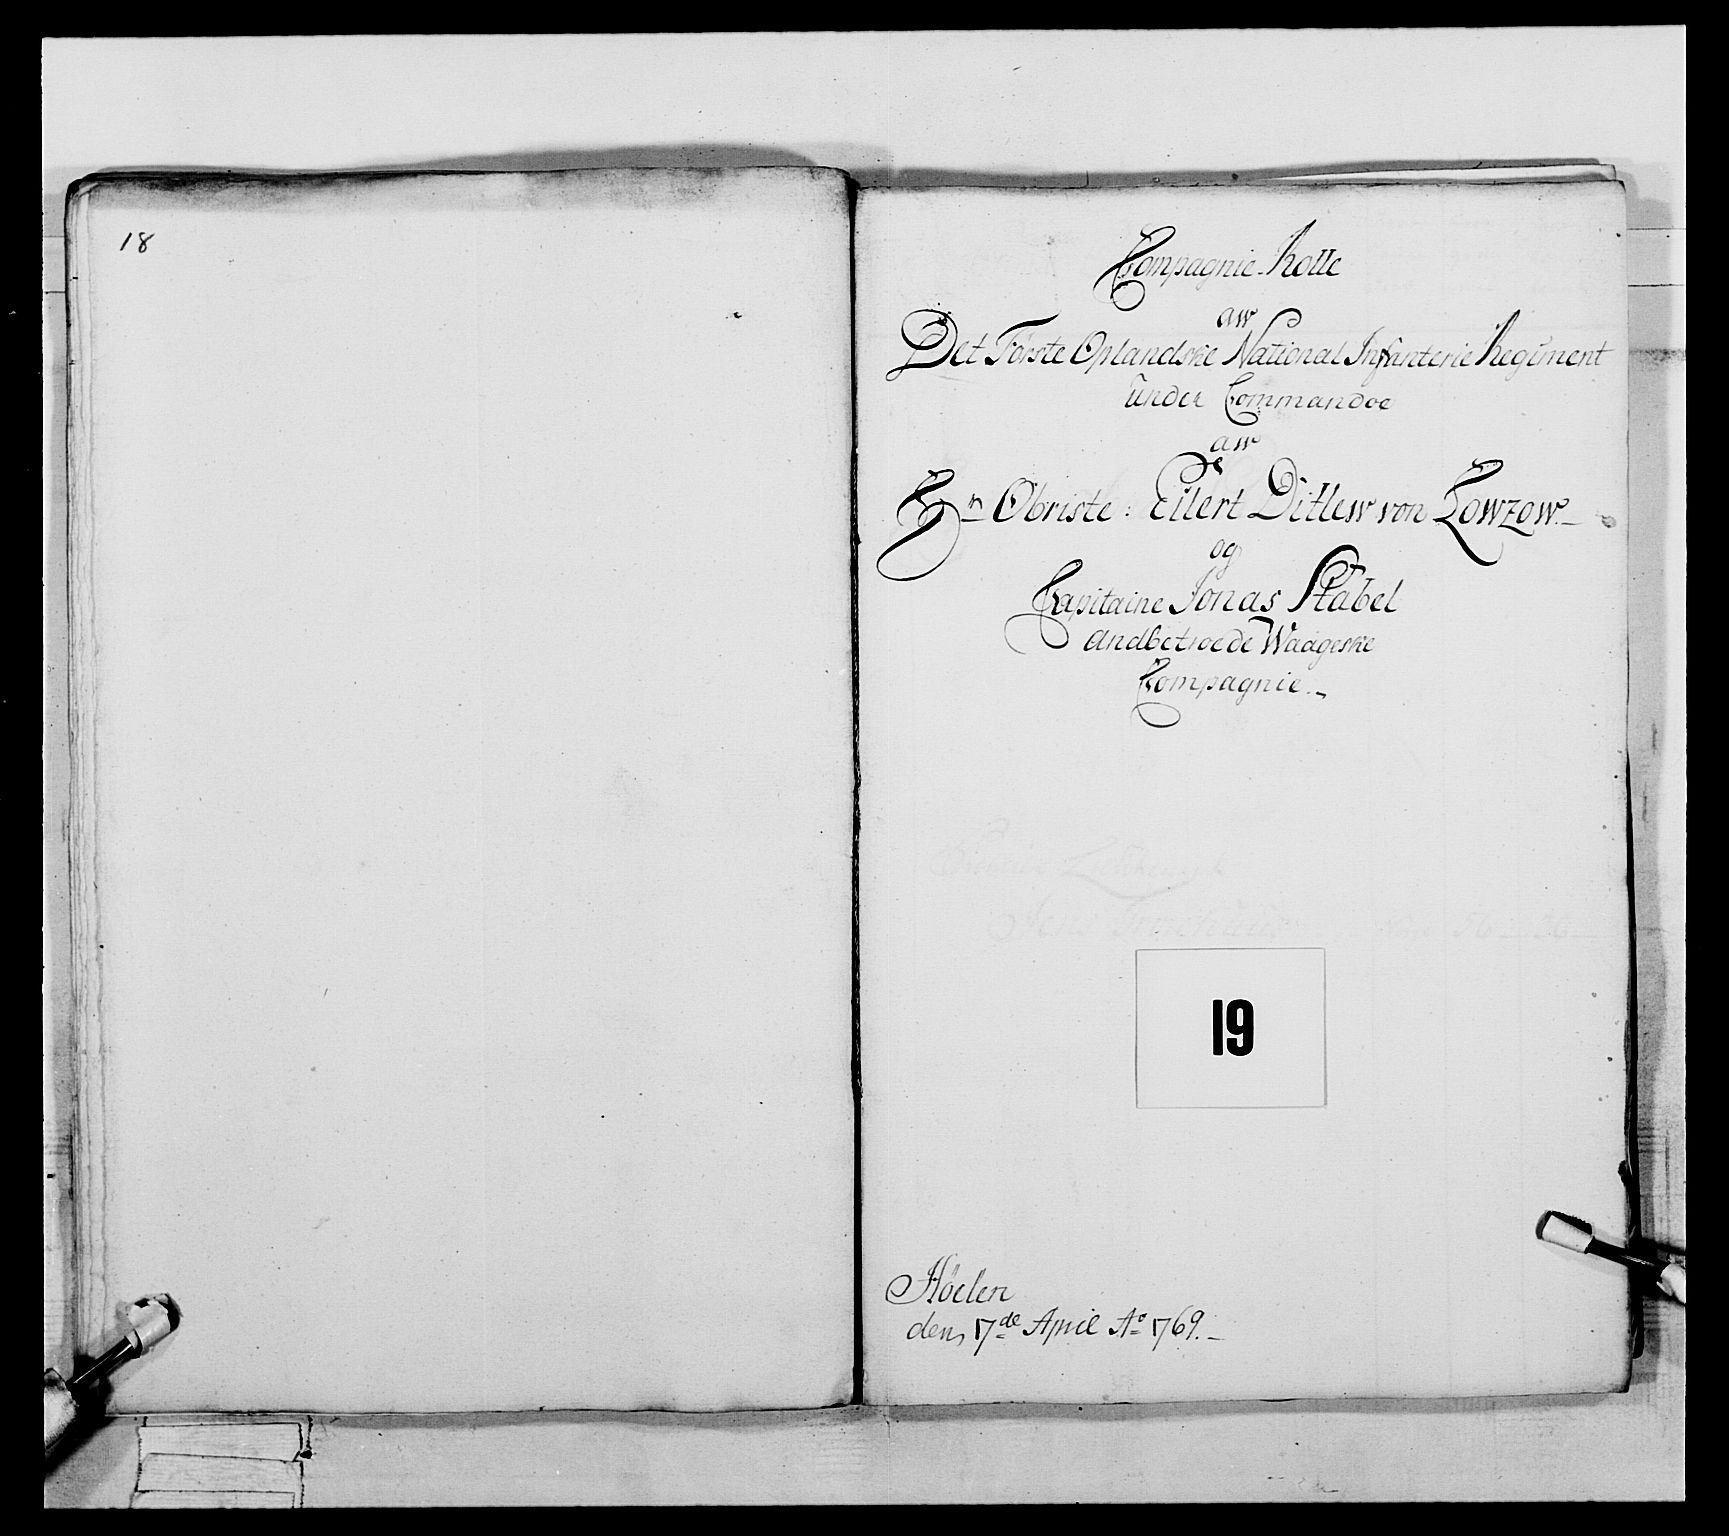 18
Compagnie-Rolle
aw
Det Første Oplandske National Infanterie Regiment
under Commandoe
aw
Hrn Obriste: Eilert Ditlew von Kowzow.
og
Capitaine Jonas Stabel
Andbetroede Waageske
Compagnie.
19
Høelen
den 17de April Ao 1769.